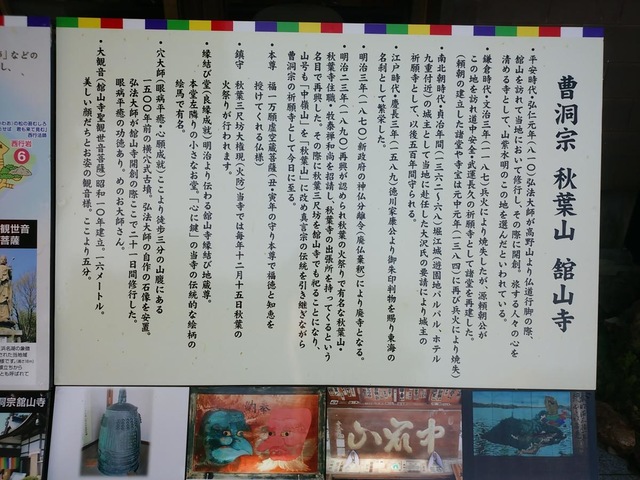 曹洞宗 秋葉山 舘山寺
・平安時代・弘仁元年(八一〇)弘法大師が高野山より仏道行脚の際、
舘山を訪れて当地において修行し、その際に開創、旅する人々の心を
清める寺として、山紫水明のこの地を選んだといわれている。
・鎌倉時代・文治三年(一一八七)兵火により焼失したが、源頼朝公が
この地を訪れ道中安全・武運長久の祈願寺として諸堂を再建した。
(頼朝の建立した諸堂や寺宝は元中元年(一三八四)に再び兵火により焼失)
・南北朝時代・貞治年間(一三六二〜六八)堀江城(遊園地パルパル、ホテル
九重付近)の城主として当地に赴任した大沢氏の要請により城主の
祈願寺として、以後五百年間守られる。
・江戸時代・慶長三年(一五八九)徳川家康公より御朱印判物を賜り東海の
名刹として繁栄した。
・明治三年(一八七〇)新政府の神仏分離令(廃仏棄釈)により廃寺となる。
・明治二三年(一八九〇)再興が認められ秋葉の火祭りで有名な秋葉山・
秋葉寺住職・牧泰禅和尚を招請し、秋葉寺の出張所を持ってくるという
名目で再興した。その際に秋葉三尺坊を舘山寺でも祀ることになり、
山号も「中嶺山」を「秋葉山」に改め真言宗の伝統を引き継ぎながら
曹洞宗の祈願寺として今日に至る。
・本尊 福一万願虚空蔵菩薩(丑・寅年の守り本尊で福徳と知恵を
授けてくれる仏様)
・鎮守 秋葉三尺坊大権現(火防)当寺では毎年十二月十五日秋葉の
火祭りが行われます。
・縁結び堂(良縁成就)明治より伝わる舘山寺縁結び地蔵尊。
本堂左隣りの小さなお堂。「心に鍵」の当寺の伝統的な絵柄の
絵馬で有名。
・穴大師(眼病平癒・心願成就)ここより徒歩三分の山腹にある
一五〇〇年前の横穴式古墳。弘法大師の自作の石像を安置。
弘法大師が舘山寺開創の際ここで二十一日間修行した。
眼病平癒の功徳あり。めのお大師さん。
・大観音(舘山寺聖観世音菩薩)昭和一〇年建立。一六メートル。
美しい顔だちとお姿の観音様。ここより五分。
などの
西行岩
6
観世音
菩薩
洞宗舘山寺
奉納
中嶺山